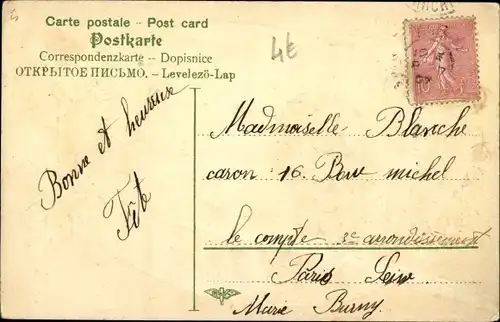 Carte postale - Post card
Postkarte
Correspondenzkarte - Dopisnice
ОТКРЫТОЕ ПИСЬМО. - Levelező-Lap
4E
10
Bonne et heureuse
Fête
Mademoiselle Blanche
caron 16 michel
le compte 3e arrondissement
Paris
Marie Burny